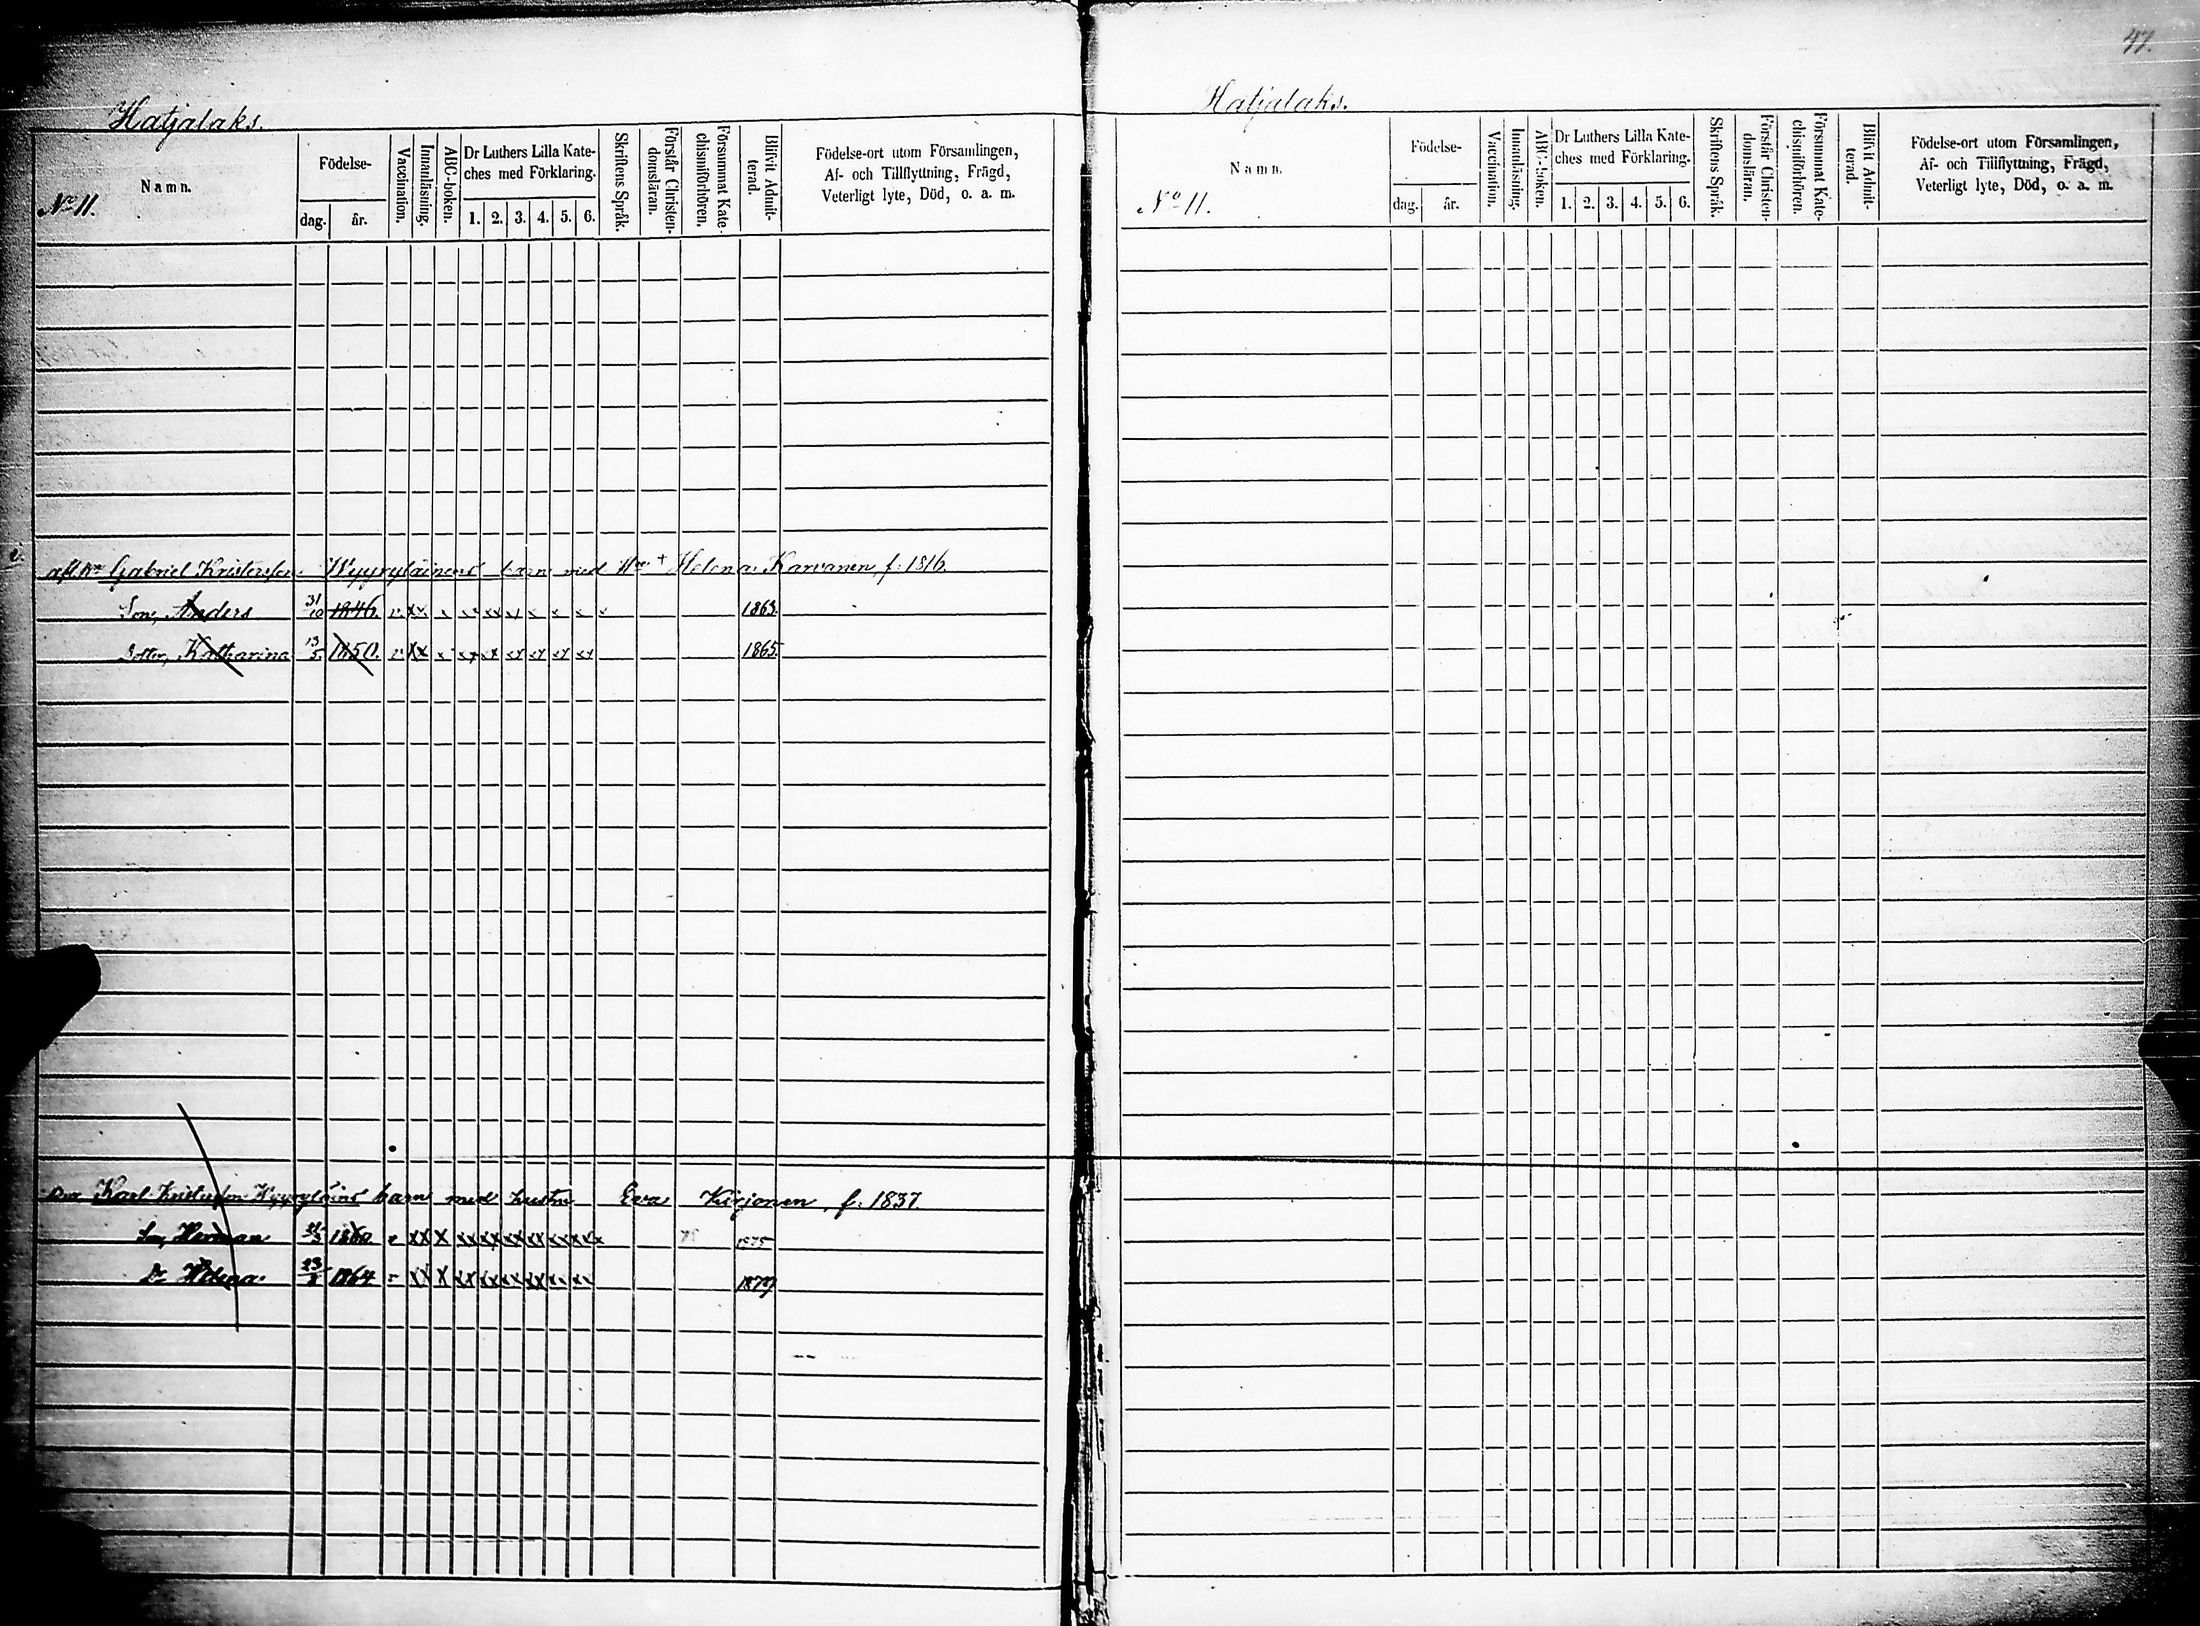 47.
Hatjalaks.
Namn.
No 11.
Födelse-
dag. år.
Vaccination.
Innanläsning.
ABC-boken.
Dr Luthers Lilla Kate-
ches med Förklaring.
1. 2. 3. 4. 5. 6.
Skriftens Språk.
Förstår Christen-
domsläran.
Försummat Kate-
chismiförhören.
Blifvit Admit-
terad.
Födelse-ort utom Församlingen,
Af- och Tillflyttning, Frägd,
Veterligt lyte, Död, o. a. m.
Gabriel Kristersson Wyyryläinens barn med Helena Karvanen, f. 1816.
Son, Anders 31/10 1846. v. xx x x x x x x x x 1863.
Dotter, Katharina 13/5 1850. v. xx x xx xx xx xx xx xx 1865.
Karl Kristersson Wyyryläins barn med hustru Eva Kirjonen, f. 1837.
Son, Herman 1860 v xx x xx xx xx xx xx xx 1875
Dr Helena 1864 v xx x xx xx xx xx xx xx 1879
Hatjalaks.
Namn.
No 11.
Födelse-
dag. år.
Vaccination.
Innanläsning.
ABC-boken.
Dr Luthers Lilla Kate-
ches med Förklaring.
1. 2. 3. 4. 5. 6.
Skriftens Språk.
Förstår Christen-
domsläran.
Försummat Kate-
chismiförhören.
Blifvit Admit-
terad.
Födelse-ort utom Församlingen,
Af- och Tillflyttning, Frägd,
Veterligt lyte, Död, o. a. m.